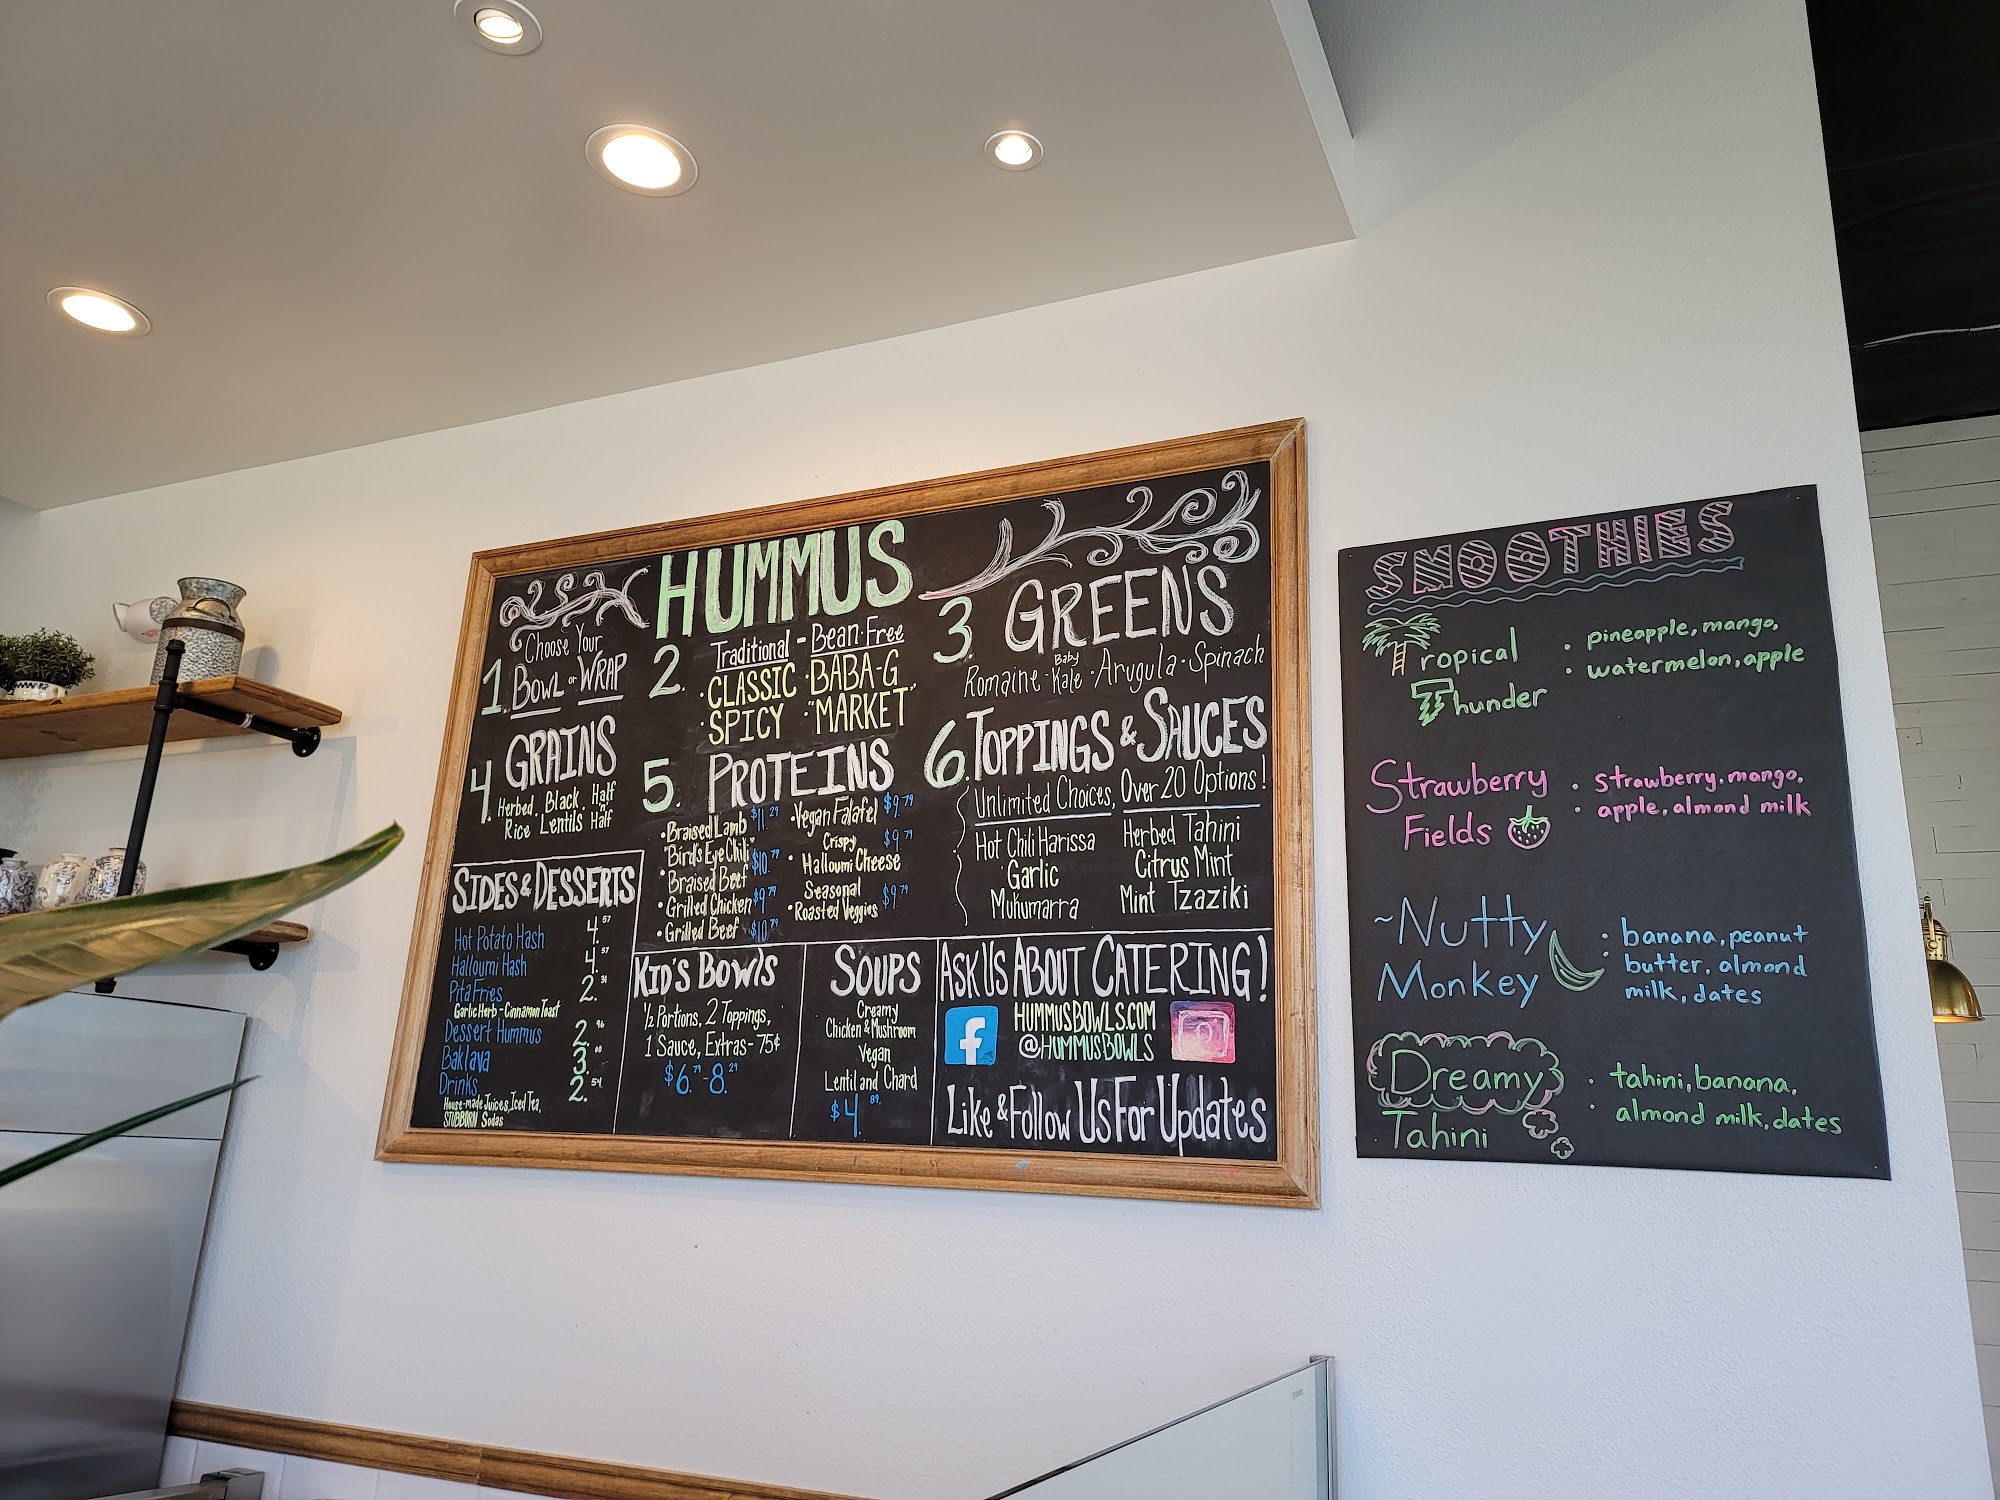 HUMMUS
1. Choose Your
BOWL or WRAP
2. Traditional - Bean-Free
• CLASSIC • BABA-G
• SPICY • "MARKET"
3. GREENS
Romaine - Baby Kale - Arugula • Spinach
4. GRAINS
Herbed Rice, Black Lentils, Half n' Half
5. PROTEINS
• Braised Lamb $11.29
• "Bird's Eye Chili"
Braised Beef $10.79
• Grilled Chicken $9.79
• Grilled Beef $10.79
• Vegan Falafel $9.79
• Crispy
Halloumi Cheese $9.79
• Seasonal
Roasted Veggies $9.79
6. TOPPINGS & SAUCES
Unlimited Choices, Over 20 Options!
Hot Chili Harissa
Garlic
Muhumarra
Herbed Tahini
Citrus Mint
Mint Tzaziki
SIDES & DESSERTS
Hot Potato Hash 4.57
Halloumi Hash 4.57
Pita Fries 2.
Garlic Herb - Cinnamon Toast
Dessert Hummus 2.96
Baklava 3.00
Drinks 2.54
House-made Juices, Iced Tea,
STUBBORN Sodas
KID'S BOWLS
½ Portions, 2 Toppings,
1 Sauce, Extras - 75¢
$6.79 - 8.29
SOUPS
Creamy
Chicken & Mushroom
Vegan
Lentil and Chard
$4.89
ASK US ABOUT CATERING!
f
HUMMUSBOWLS.COM
@HUMMUSBOWLS
Like & Follow Us For Updates
SMOOTHIES
Tropical
Thunder
• pineapple, mango,
• watermelon, apple
Strawberry
Fields
• strawberry, mango,
• apple, almond milk
~Nutty
Monkey
• banana, peanut
butter, almond
milk, dates
Dreamy
Tahini
• tahini, banana,
• almond milk, dates